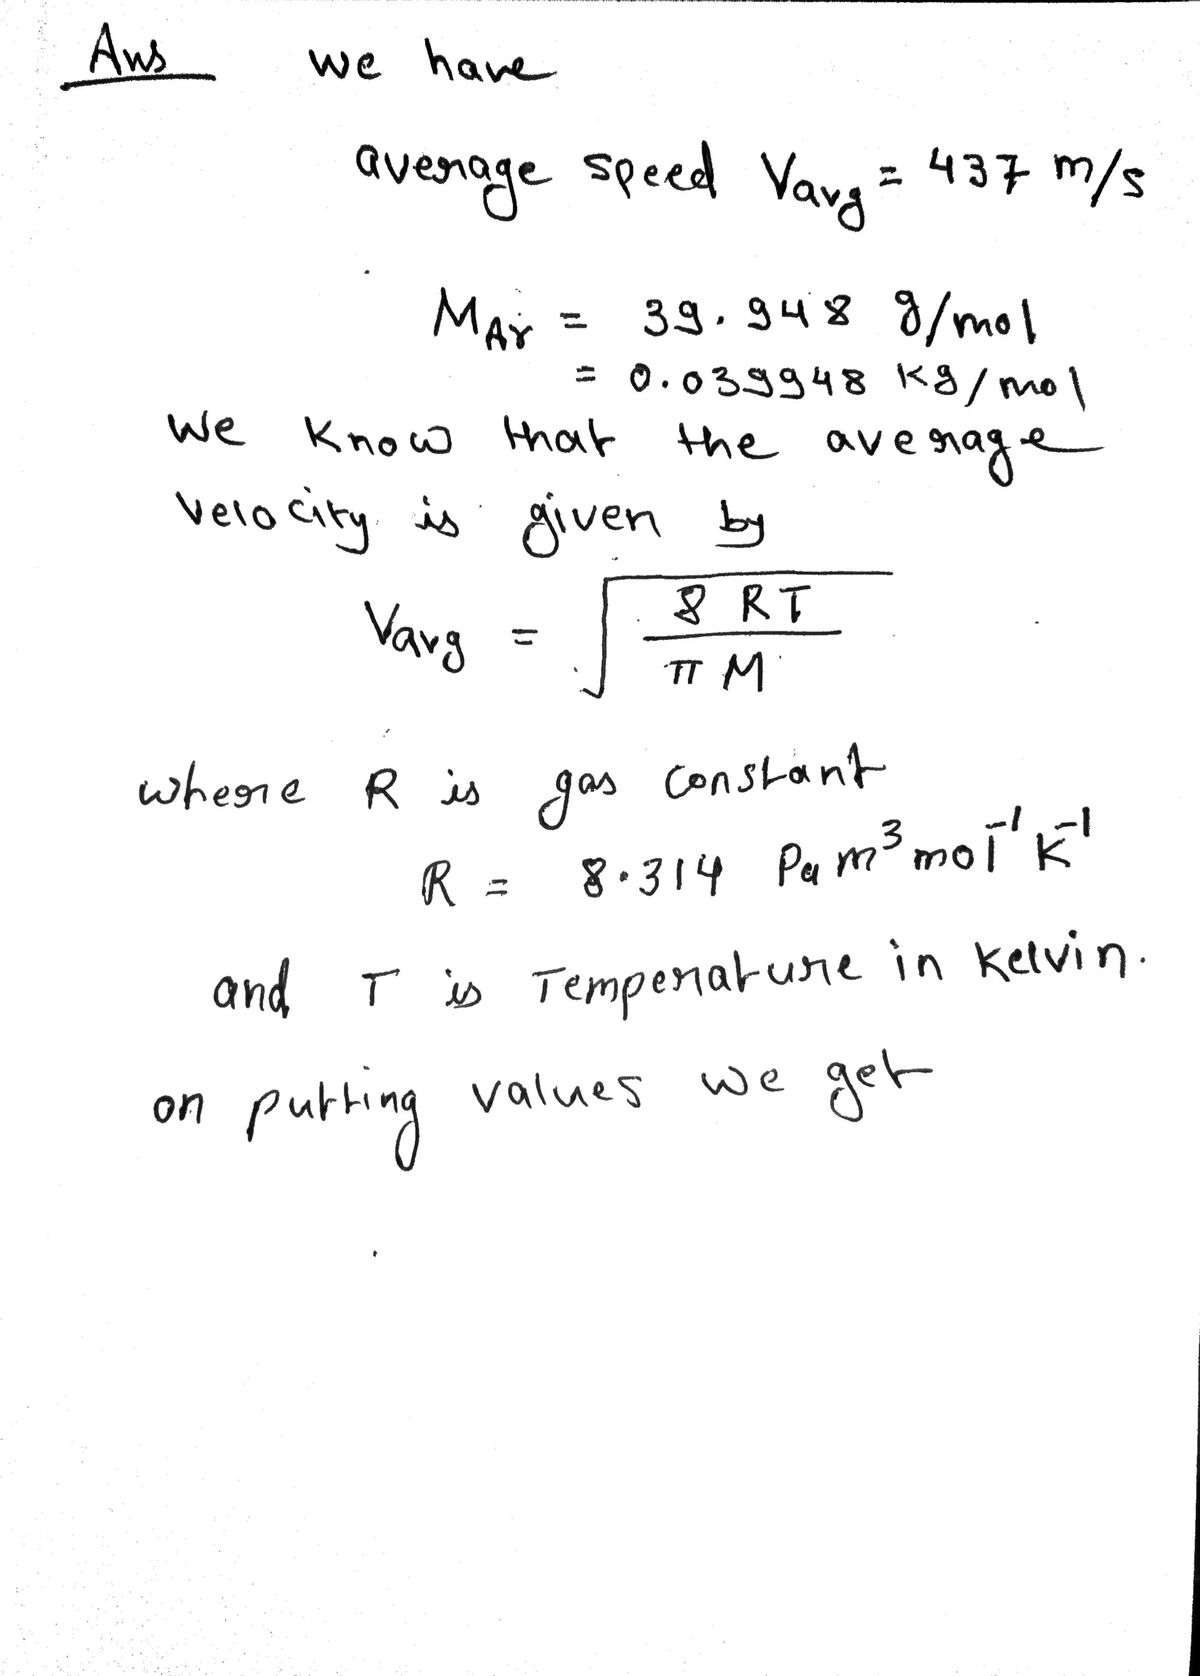 Ans we have
average speed Vavg = 437 m/s
MAr = 39.948 g/mol
= 0.039948 kg/mol
we know that the average
velocity is given by
Vavg = √(8 RT / π M)
where R is gas constant
R = 8.314 Pa m³ mol⁻¹ K⁻¹
and T is Temperature in Kelvin.
on putting values we get